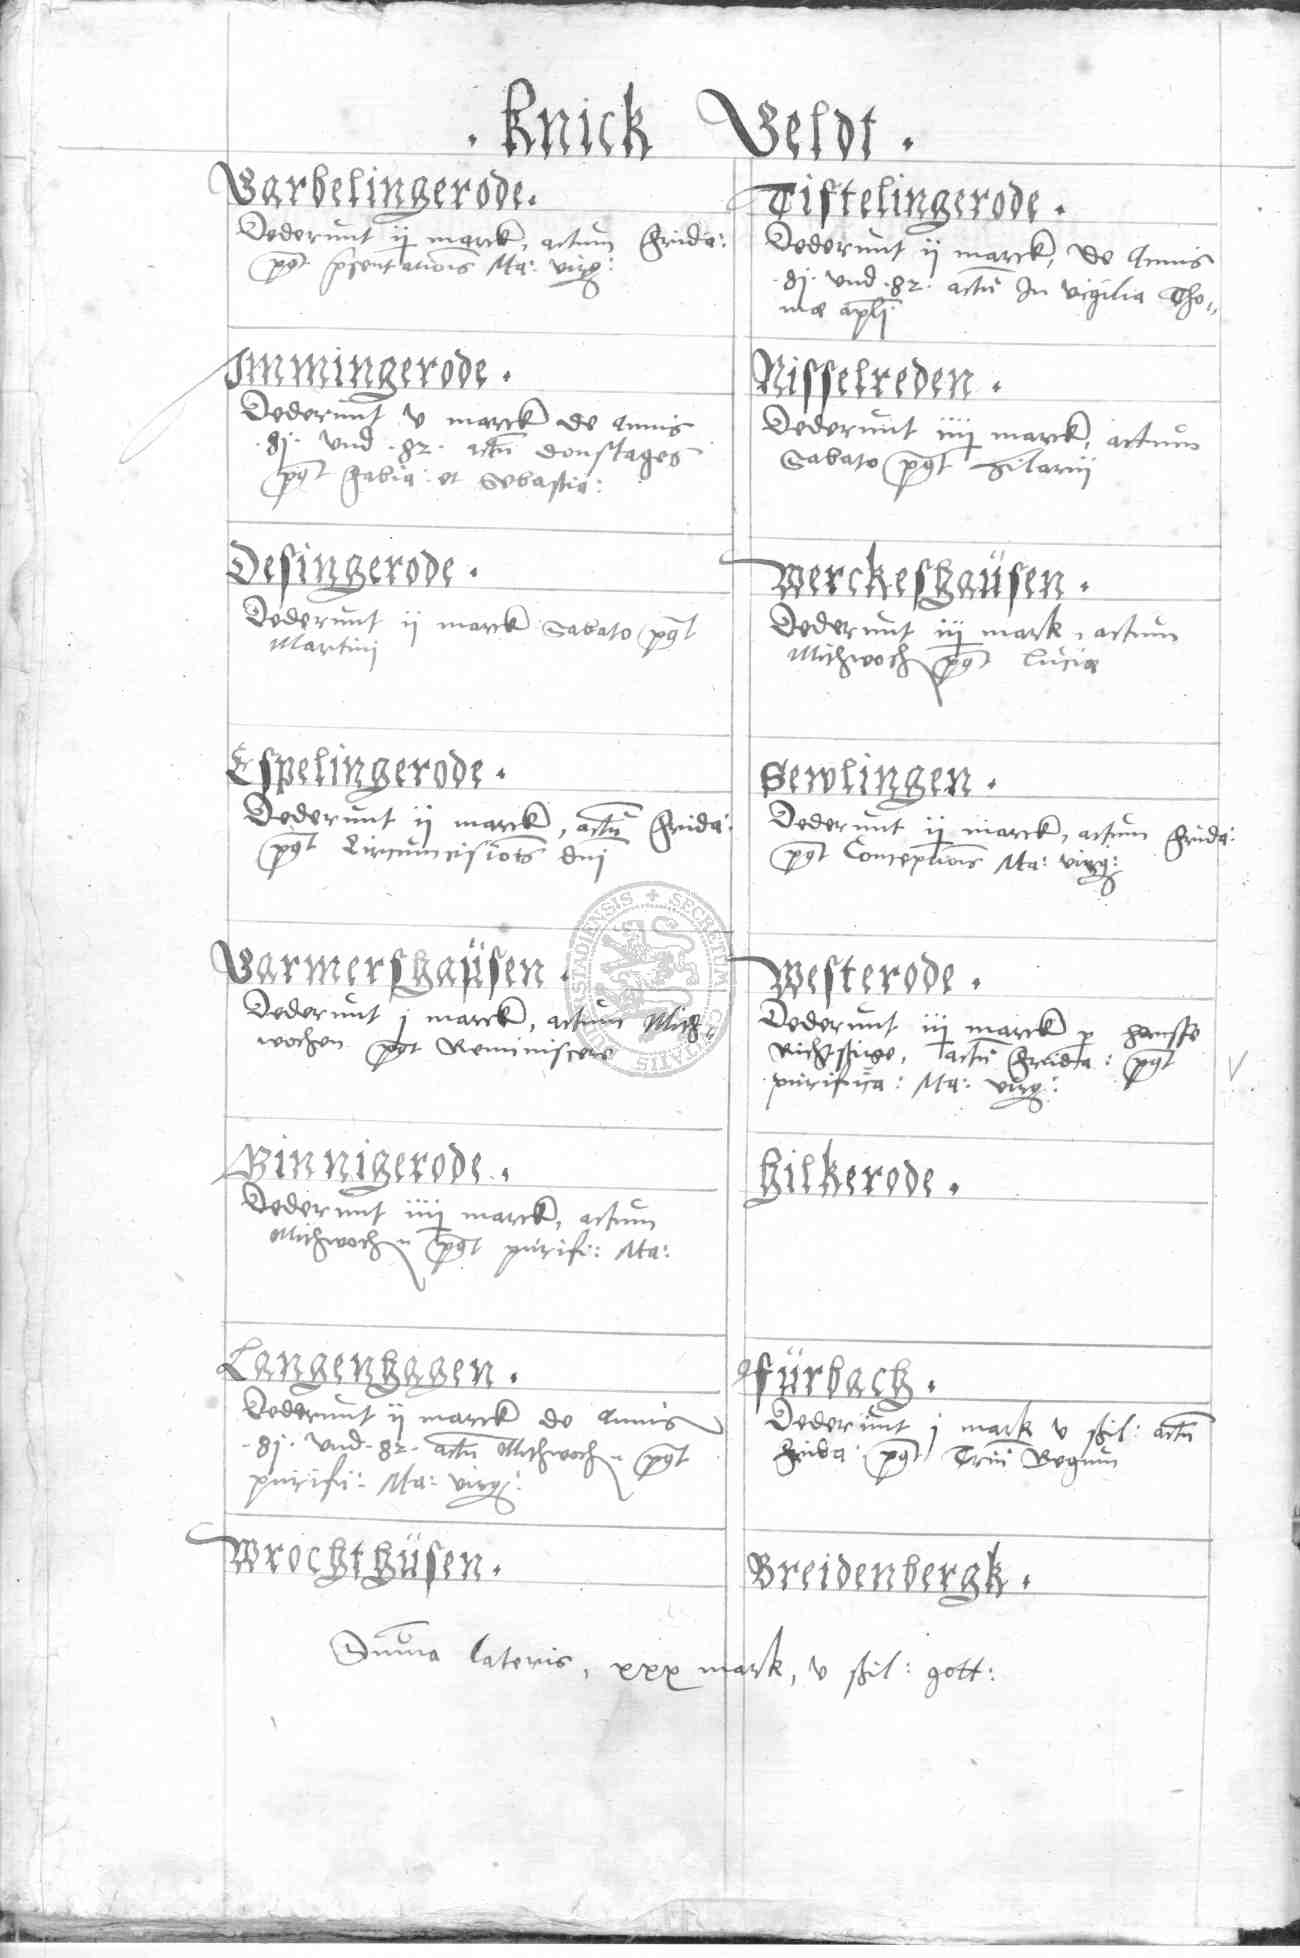 . Knick Geldt .
Garbelingerode.
Dederunt ij marck, actum Frida:
post presentationis Ma: virg:
Immingerode .
Dederunt v marck de Annis
.8j. vnd .82. actu donstages
post Fabia: et Sebastia:
Desingerode .
Dederunt ij marck Sabato post
Martini
Espelingerode .
Dederunt ij marck, actu Frida:
post Circumcisiois dni
Germershaüsen .
Dederunt j marck, actum Mith-
wochen post Reminiscere
Binnigerode .
Dederunt iiij marck, actum
Mithwochen post purifi: Ma:
Langenhagen .
Dederunt ij marck de Annis
.8j. vnd .82. actu Mithwochen post
purifi: Ma: virg:
Wrochthüsen .
Tistelingerode .
Dederunt ij marck, de Annis
.8j. vnd .82. actu In vigilia Tho-
mae apli
Nisselreden .
Dederunt iiij marck, actum
Sabato post Hilarii
Werckeshaüsen .
Dederunt iij mark, actum
Mithwoch post Luciae
Sewlingen .
Dederunt ij marck, actum Frida:
post Conceptiois Ma: virg:
Westerode .
Dederunt iij marck p Hansse
actu Freida: post
purifica: Ma: virg:
Hilkerode .
Fürbach .
Dederunt j mark v ßil: actu
Frida: post Triu Regum
Breidenbergk .
Suma lateris, xxx mark, v ßil: gott:
SECRETUM CIVITATIS DUDERSTADIENSIS